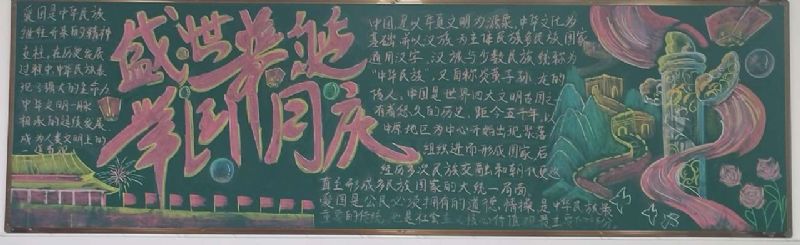 爱国是中华民族
继往开来的精神
支柱，在历史发展
过程中，中华民族表
现了强大的生命力
中华文明一脉
相承的延续发展
成为人类文明上的
一道
盛世华诞
举国同庆
中国是以华夏文明为源泉、中华文化为
基础并以汉族为主体民族多民族国家
通用汉字，汉族与少数民族统称为
“中华民族”，又自称炎黄子孙、龙的
传人，中国是世界四大文明古国之一
有着悠久的历史，距今五千年，以
中原地区为中心开始出现聚落
组织进而形成国家后
经历多次民族交融和朝代更迭
直至形成多民族国家的大统一局面
爱国是公民必须拥有的道德，情操，是中华民族最
重要的传统，也是社会主义核心价值